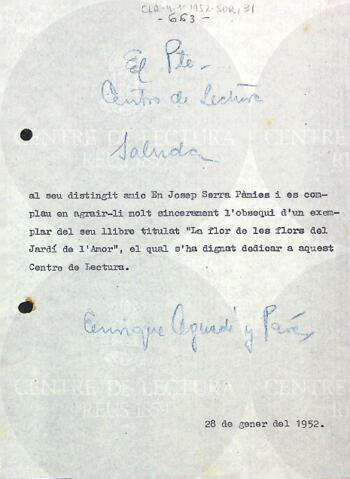 CLA-4.1-1952-SOR, 31
- 663 -
El Pte-
Centro de Lectura
Saluda
al seu distingit amic En Josep Serra Pàmies i es com-
plau en agrair-li molt sincerament l'obsequi d'un exem-
plar del seu llibre titulat "La flor de les flors del
Jardí de l'Amor", el qual s'ha dignat dedicar a aquest
Centre de Lectura.
Enrique Aguadé y Parés
28 de gener del 1952.
CENTRE DE LECTURA
CENTRE DE LECTURA
REUS 1859
CENTRE DE LECTURA
REUS 1859